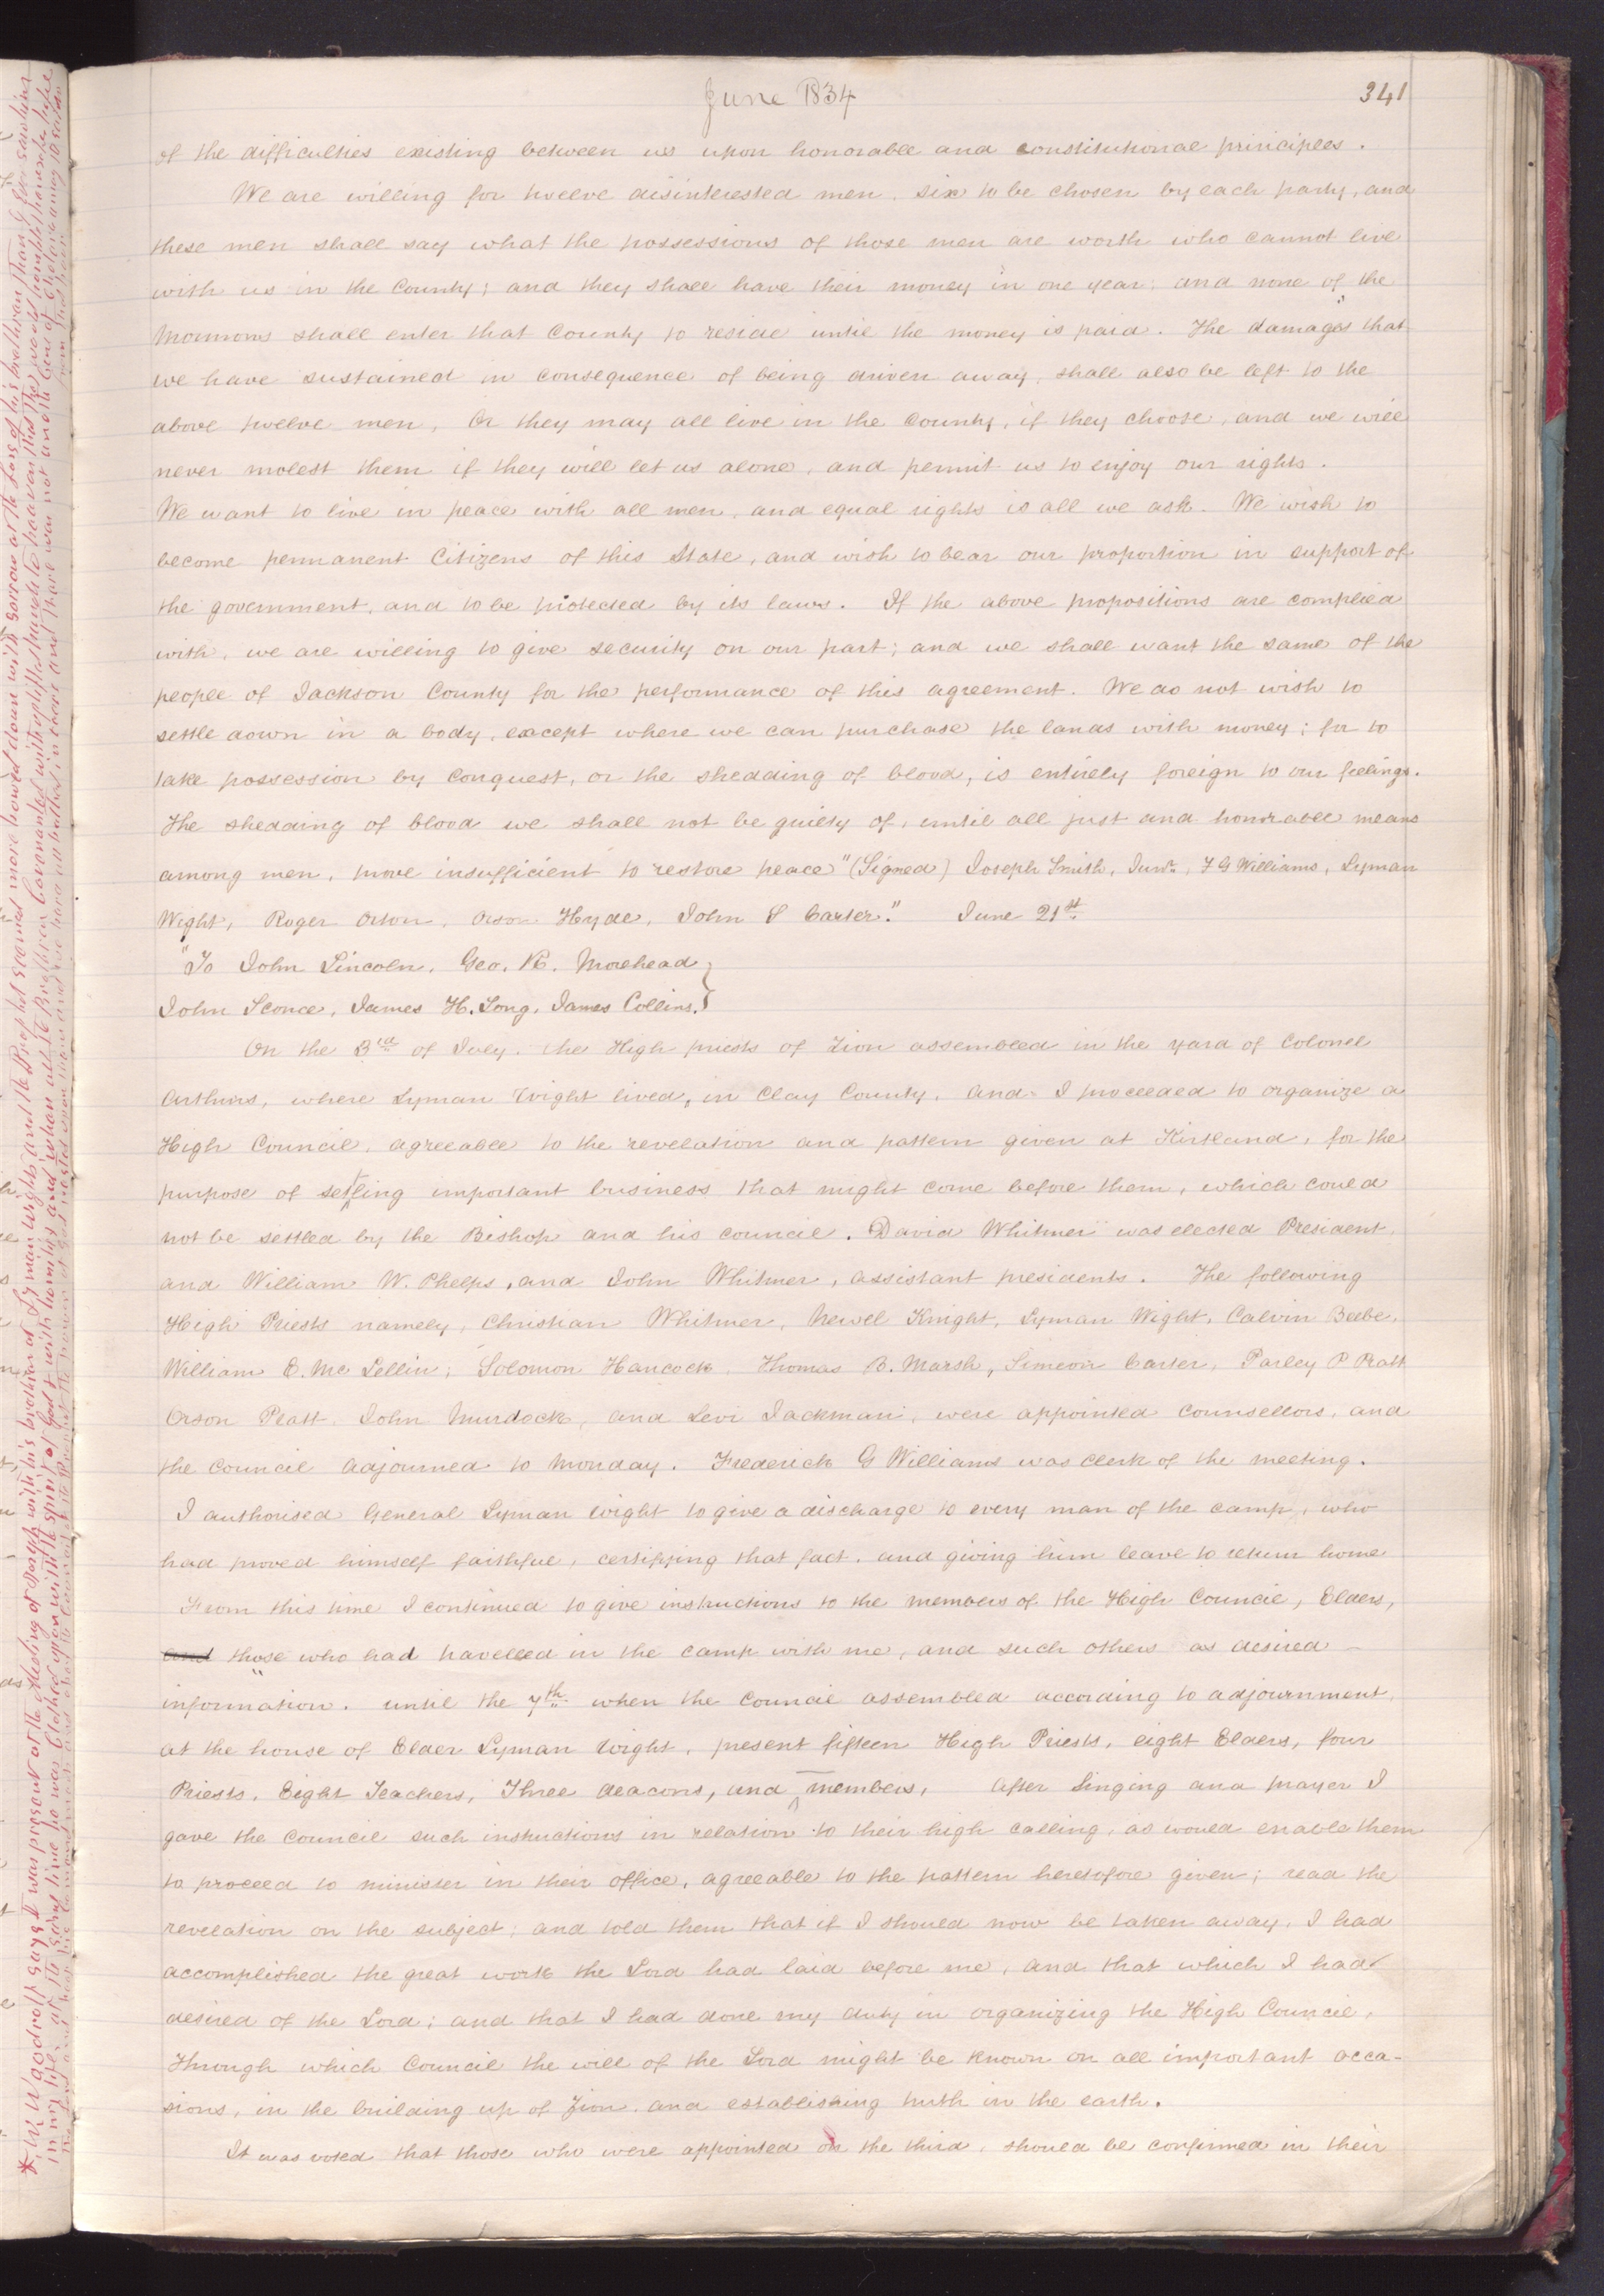 June 1834
341
of the difficulties existing between us upon honorable and constitutional principles.
We are willing for twelve disinterested men, six to be chosen by each party, and
these men shall say what the possessions of those men are worth who cannot live
with us in the County; and they shall have their money in one year; and none of the
Mormons shall enter that County to reside until the money is paid. The damages that
we have sustained in consequence of being driven away, shall also be left to the
above twelve men, Or they may all live in the County, if they choose, and we will
never molest them if they will let us alone, and permit us to enjoy our rights.
We want to live in peace with all men, and equal rights is all we ask. We wish to
become permanent Citizens of this State, and wish to bear our proportion in support of
the government, and to be protected by its laws. If the above propositions are complied
with, we are willing to give security on our part; and we shall want the same of the
people of Jackson County for the performance of this agreement. We do not wish to
settle down in a body, except where we can purchase the lands with money; for to
take possession by conquest, or the shedding of blood, is entirely foreign to our feelings.
The shedding of blood we shall not be guilty of, until all just and honorable means
among men, prove insufficient to restore peace" (Signed) Joseph Smith, Junr., F G Williams, Lyman
Wight, Roger Orton, Orson Hyde, John S Carter." June 21st
"To John Lincoln, Geo. R. Morehead
John Sconce, James H. Long, James Collins.}
On the 3rd of July, the High priests of Zion assembled in the yard of Colonel
Arthurs, where Lyman Wight lived, in Clay County, and I proceeded to organize a
High Council, agreeable to the revelation and pattern given at Kirtland, for the
purpose of settling important business that might come before them, which could
not be settled by the Bishop and his council. David Whitmer was elected President,
and William W. Phelps, and John Whitmer, assistant presidents. The following
High Priests namely, Christian Whitmer, Newel Knight, Lyman Wight, Calvin Beebe,
William E. Mc Lellin, Solomon Hancock, Thomas B. Marsh, Simeon Carter, Parley P Pratt
Orson Pratt, John Murdock, and Levi Jackman, were appointed counsellors, and
the council adjourned to Monday. Frederick G Williams was clerk of the meeting.
I authorised General Lyman Wight to give a discharge to every man of the camp, who
had proved himself faithful, certifying that fact, and giving him leave to return home
From this time I continued to give instructions to the members of the High Council, Elders,
and those who had travelled in the camp with me, and such others as desired
information. until the 7th when the council assembled according to adjournment,
at the house of Elder Lyman Wight, present fifteen High Priests, eight Elders, four
Priests, Eight Teachers, Three deacons, and members, After Singing and prayer I
gave the council such instructions in relation to their high calling, as would enable them
to proceed to minister in their office, agreeable to the pattern heretofore given; read the
revelation on the subject; and told them that if I should now be taken away, I had
accomplished the great work the Lord had laid before me, and that which I had
desired of the Lord; and that I had done my duty in organizing the High Council,
Through which Council the will of the Lord might be known on all important occa-
sions, in the building up of Zion, and establishing truth in the earth.
It was voted that those who were appointed on the third, should be confirmed in their